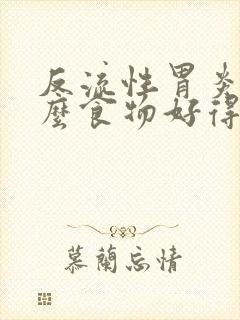 反流性胃炎
麼食物好得
慕蘭忘情